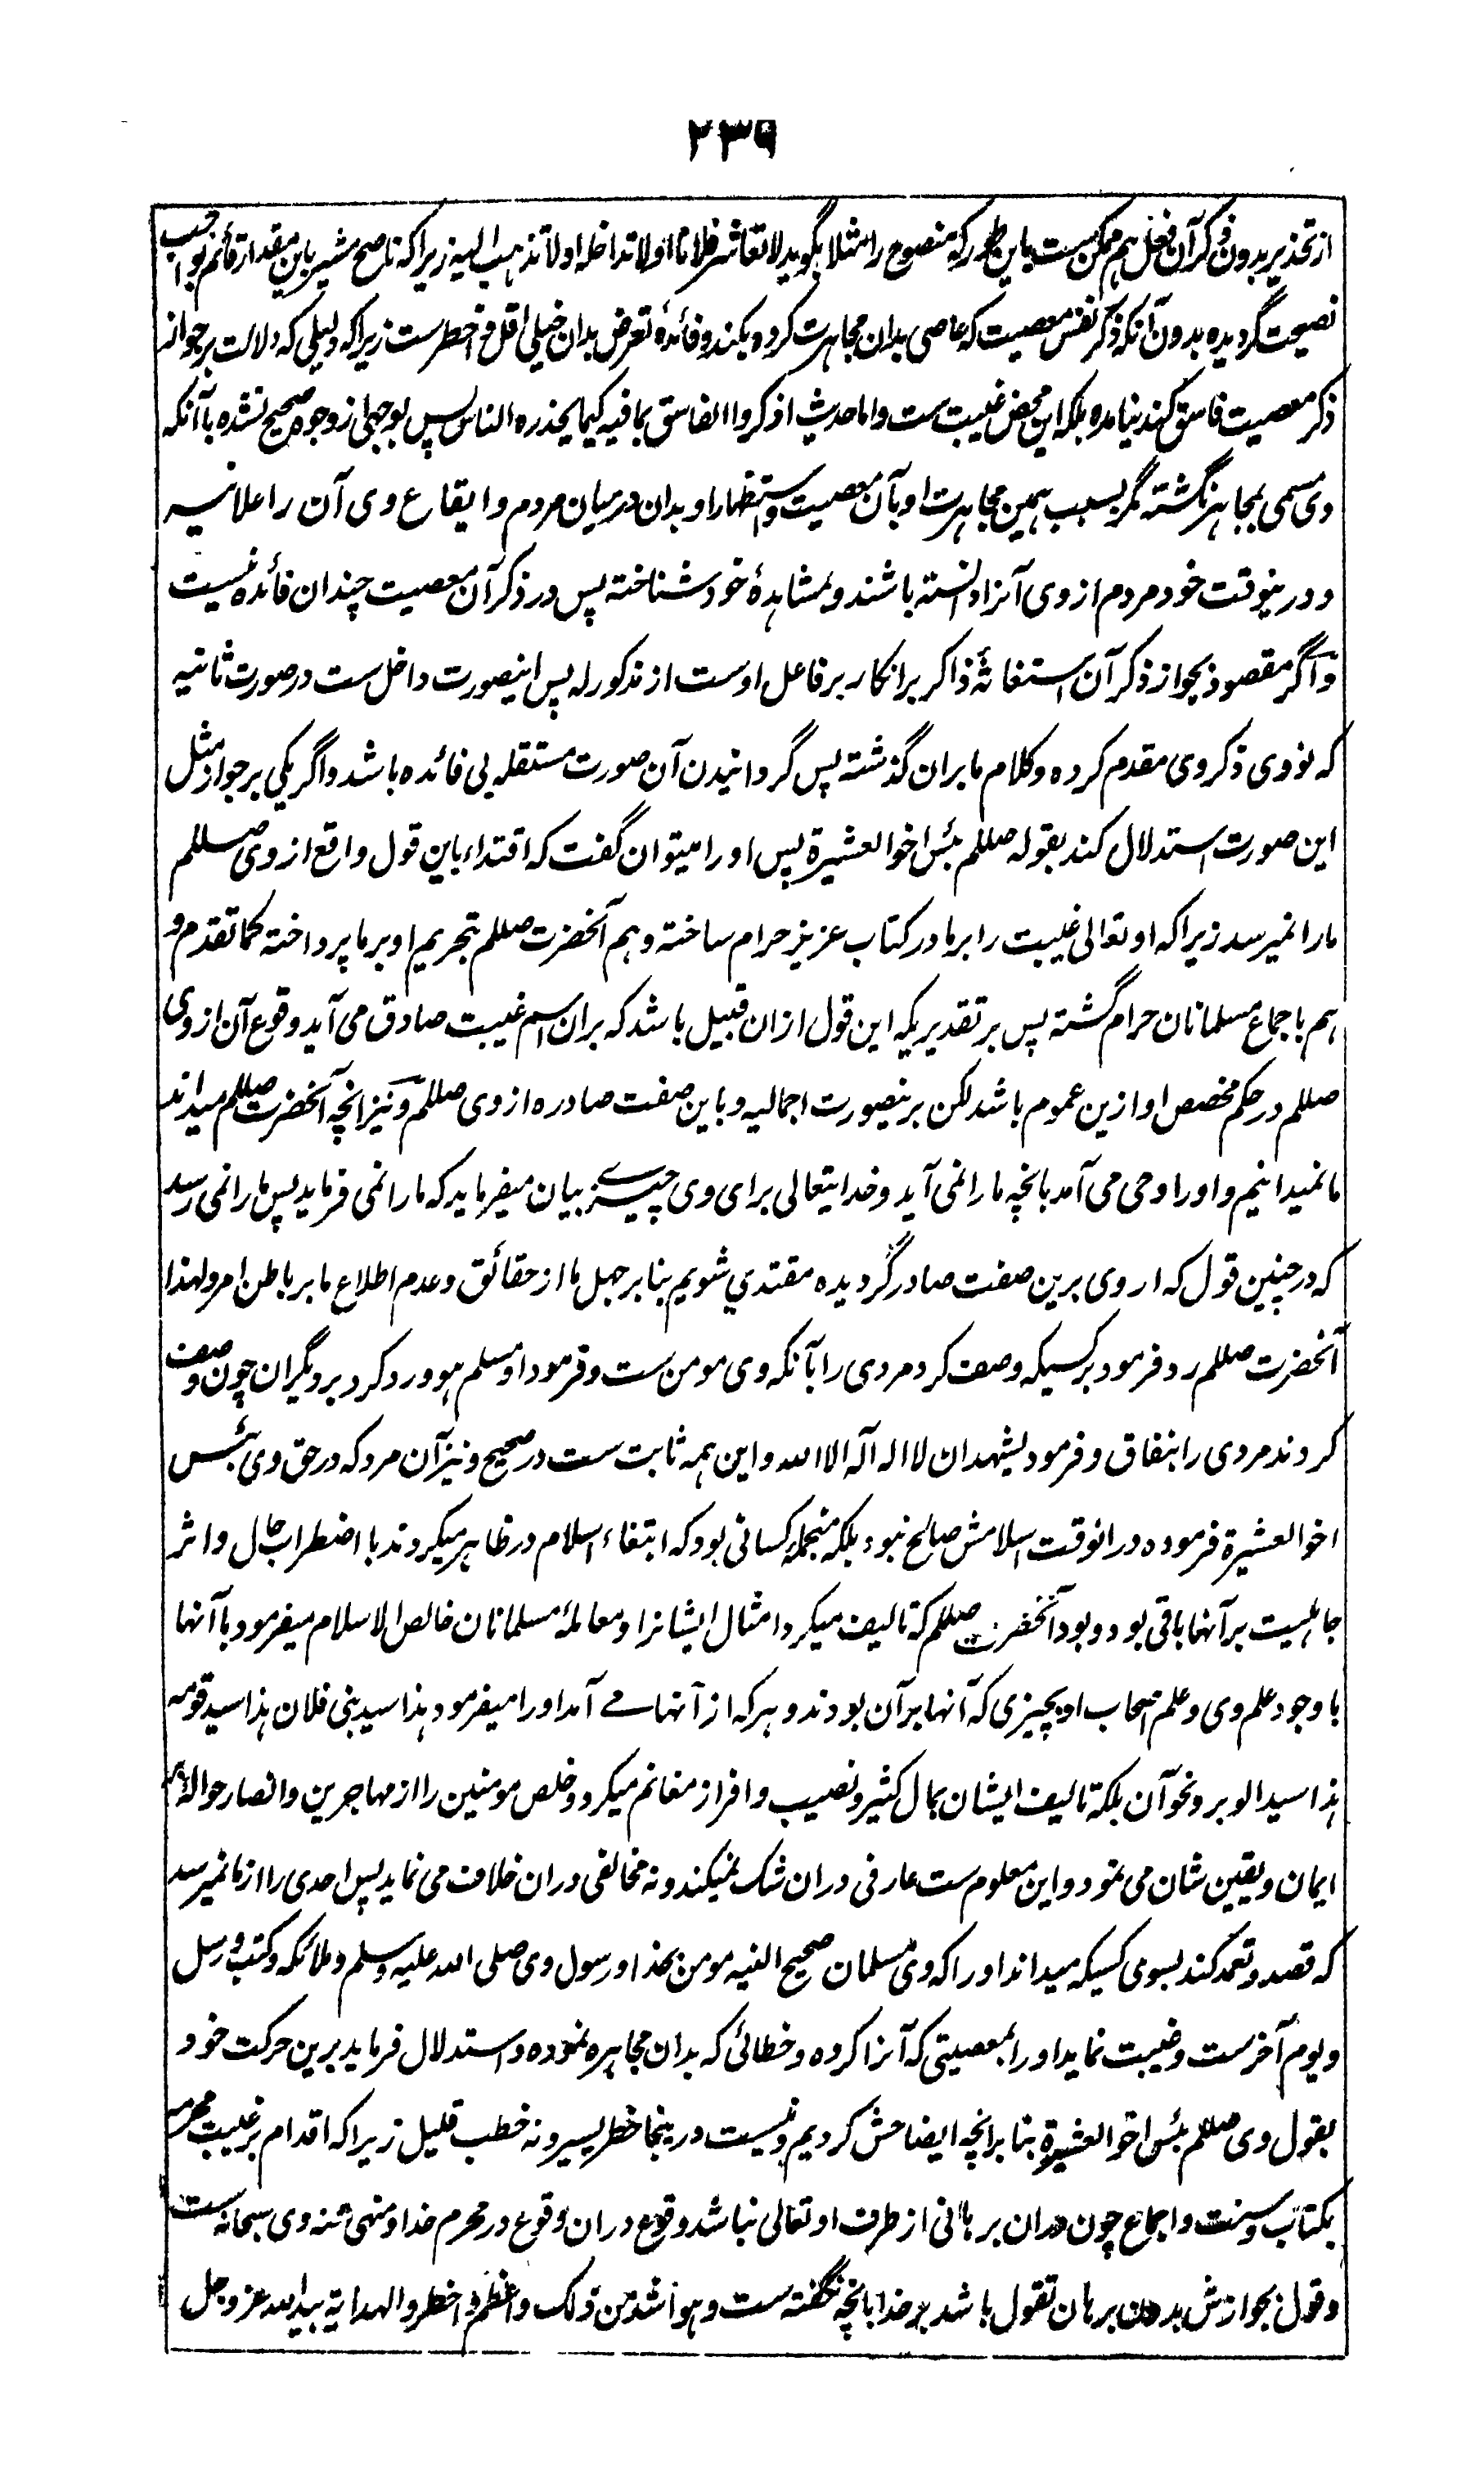 ۲۳۹
از تحذیر بدون ذکر آن فعل هم ممکن ست باین طور که منصوح را مثلا بگوید لا تعاشر فلانا او لا تداخله او لا تذهب الیه زیرا که ناصح مشیر باین مقدار قائم بواجب
نصیحت گردیده بدون آنکه ذکر نفس معصیت که عاصی بدان مجاهرت کرده بکند و فائدهٔ تعرض بدان خیلی اقل و اخطرست زیرا که دلیلی که دلالت بر جواز
ذکر معصیت فاسق کند نیامده بلکه این محض غیبت ست و اما حدیث اذکروا الفاسق بما فیه کیما یحذره الناس پس بوجهی از وجوه صحیح نشده با آنکه
وی مسمی بمجاهر نگشته مگر بسبب همین مجاهرت او بآن معصیت و استظهار او بدان درمیان مردم و ایقاع وی آن را علانیه
و درینوقت خود مردم از وی آنرا دانسته باشند و بمشاهدهٔ خود شناخته پس در ذکر آن معصیت چندان فائده نیست
و اگر مقصود بجواز ذکر آن استغاثهٔ ذاکر بر انکار بر فاعل اوست از مذکور له پس اینصورت داخل ست در صورت ثانیه
که نووی ذکر وی مقدم کرده و کلام ما بران گذشته پس گردانیدن آن صورت مستقله بی فائده باشد و اگر یکی بر جواز مثل
این صورت استدلال کند بقوله صللم بئس اخو العشیرة پس او را میتوان گفت که اقتداء باین قول واقع از وی صللم
ما را نمیرسد زیرا که او تعالی غیبت را بر ما در کتاب عزیز حرام ساخته و هم آنحضرت صللم بتحریم او بر ما پرداخته کما تقدم و
هم باجماع مسلمانان حرام گشته پس بر تقدیریکه این قول ازان قبیل باشد که بران اسم غیبت صادق می آید وقوع آن از وی
صللم در حکم مخصص او ازین عموم باشد لکن برینصورت اجمالیه و باین صفت صادره از وی صللم و نیز انچه آنحضرت صللم میداند
ما نمیدانیم و او را وحی می آمد بانچه ما را نمی آید و خدایتعالی برای وی چیزے بیان میفرماید که ما را نمی فرماید پس ما را نمی رسد
که در چنین قول که از وی برین صفت صادر گردیده مقتدي شویم بنا بر جهل ما از حقائق و عدم اطلاع ما بر باطن امر و لهذا
آنحضرت صللم رد فرمود بر کسیکه وصف کرد مردی را بآنکه وی مومن ست و فرمود او مسلم هو و رد کرد بر دیگران چون وصف
کردند مردی را بنفاق و فرمود لیشهد ان لا اله الا الله و این همه ثابت ست در صحیح و نیز آن مرد که در حق وی بئس
اخو العشیرة فرموده درانوقت اسلامش صالح نبود بلکه منجمله کسانی بود که ابتغاء اسلام در ظاهر میکردند با اضطراب حال و اثر
جاهلیت بر آنها باقی بود و بود آنحضرت صللم که تالیف میکرد امثال ایشانرا و معاملهٔ مسلمانان خالص الاسلام میفرمود با آنها
با وجود علم وی و علم اصحاب او بچیزی که آنها بر آن بودند و هر که از آنها مے آمد او را میفرمود هذا سید بنی فلان هذا سید قومه
هذا سید الوبر و نحو آن بلکه تالیف ایشان بمال کثیر و نصیب وافر از مغانم میکرد و خلص مومنین را از مهاجرین و انصار حواله
ایمان و یقین شان می نمود و این معلوم ست عارفی دران شک نمیکند و نه مخالفی دران خلاف می نماید پس احدی را از ما نمیرسد
که قصد و تعمد کند بسوی کسیکه میداند او را که وی مسلمان صحیح النیه مومن بخدا و رسول وی صلی الله علیه وسلم و ملائکه و کتب و رسل
و یوم آخرست و غیبت نماید او را بمعصیتی که آنرا کرده و خطائی که بدان مجاهره نموده و استدلال فرماید برین حرکت خود
بقول وی صللم بئس اخو العشیرة بنا بر انچه ایضاحش کردیم و نیست درینجا خطر یسیر و نه خطب قلیل زیرا که اقدام بر غیبت محرمه
بکتاب و سنت و اجماع چون دران برهانی از طرف او تعالی نباشد وقوع دران وقوع در محرم خدا و منهی عنه وی سبحانه ست
و قول بجوازش بدون برهان تقول باشد بر خدا بانچه نگفته ست و هو اشد من ذلک و اعظم و اخطر و الهدایة بید الله عز و جل